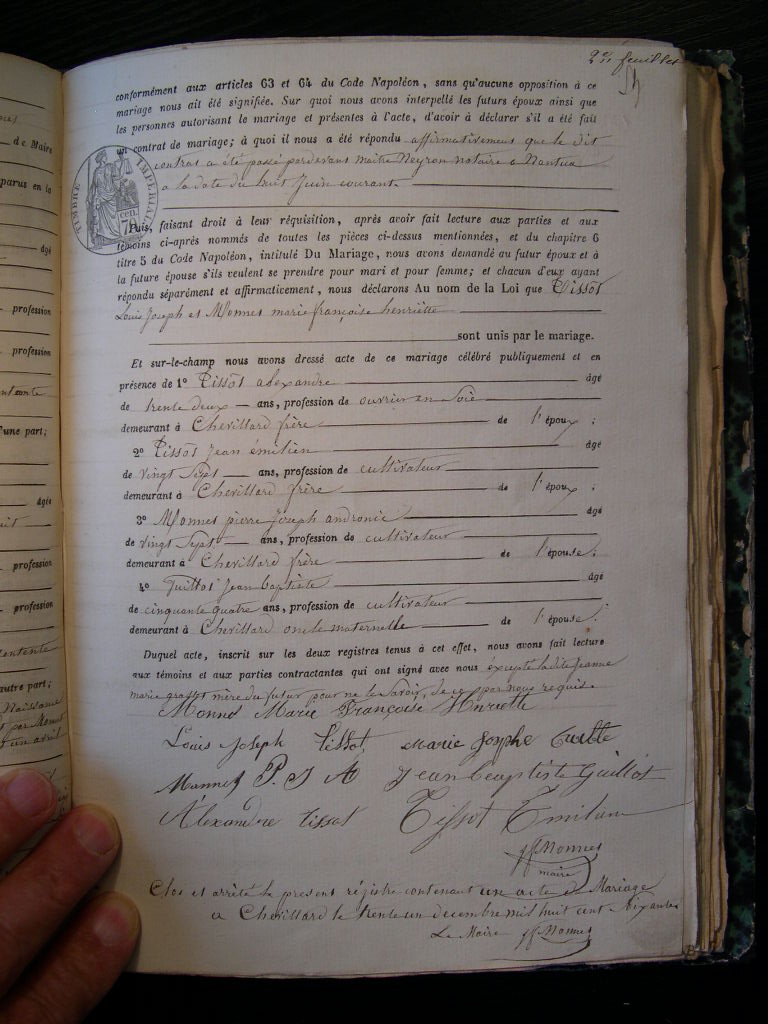 2e feuillet
conformément aux articles 63 et 64 du Code Napoléon, sans qu'aucune opposition à ce
mariage nous ait été signifiée. Sur quoi nous avons interpellé les futurs époux ainsi que
les personnes autorisant le mariage et présentes à l'acte, d'avoir à déclarer s'il a été fait
un contrat de mariage; à quoi il nous a été répondu affirmativement que le dit
contrat a été passé pardevant maitre Neyron notaire a Nantua
a la date du huit Juin courant.
TIMBRE IMPERIAL
70 cen.
Puis, faisant droit à leur réquisition, après avoir fait lecture aux parties et aux
témoins ci-après nommés de toutes les pièces ci-dessus mentionnées, et du chapitre 6
titre 5 du Code Napoléon, intitulé Du Mariage, nous avons demandé au futur époux et à
la future épouse s'ils veulent se prendre pour mari et pour femme; et chacun d'eux ayant
répondu séparément et affirmativement, nous déclarons Au nom de la Loi que Tissot
Louis Joseph et Monnet marie françoise henriette
sont unis par le mariage.
Et sur-le-champ nous avons dressé acte de ce mariage célébré publiquement et en
présence de 1º Tissot alexandre âgé
de trente deux ans, profession de ouvrier en Soie
demeurant à Chevillard frère de l'époux ;
2º Tissot Jean émilien âgé
de vingt Sept ans, profession de cultivateur
demeurant à Chevillard frère de l'époux ;
3º Monnet pierre Joseph andronic âgé
de vingt Sept ans, profession de cultivateur
demeurant à Chevillard frère de l'épouse ;
4º Guillot Jean baptiste âgé
de cinquante quatre ans, profession de cultivateur
demeurant à Chevillard oncle maternelle de l'épouse.
Duquel acte, inscrit sur les deux registres tenus à cet effet, nous avons fait lecture
aux témoins et aux parties contractantes qui ont signé avec nous excepté ladite Jeanne
marie grosset mère du futur pour ne le Savoir, de ce par nous requise
Monnet Marie Françoise Henriette
Louis Joseph Tissot Marie Josphe
Monnet P. J A Jean Baptiste Guillot
Alexandre Tissot Tissot Emilien
Monnet
maire
Clos et arrêté le present régistre contenant un acte de Mariage
a Chevillard le trente un decembre mil huit cent soixante
Le Maire Monnet
de Maire
parus en la
âgé
profession
profession
'une part;
âgé
profession
profession
autre part;